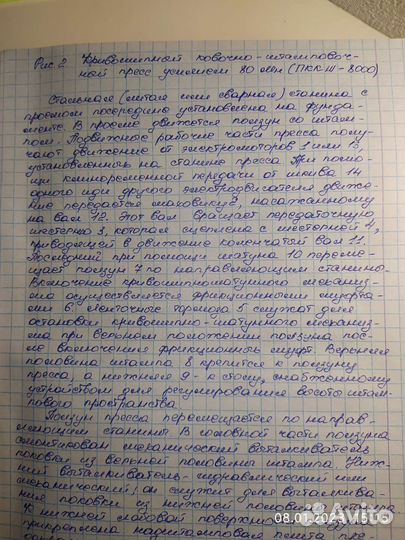 Рис. 2 Кривошипный ковочно-штамповоч-
ный пресс усилием 80 мн (ПККШ-8000)
Стальная (литая или сварная) станина с
проемом посередине установлена на фунда-
менте. В проеме движется ползун со штам-
пом. Подвижные рабочие части пресса полу-
чают движение от электромоторов 1 или 13,
установленных на станине пресса. При помо-
щи клиноременной передачи от шкива 14
одного или другого электродвигателя движе-
ние передается маховику 2, насаженному
на вал 12. Этот вал вращает передаточную
шестерню 3, которая сцеплена с шестерней 4,
приводящей в движение коленчатый вал 11.
Последний при помощи шатуна 10 переме-
щает ползун 7 по направляющим станины.
Включение кривошипношатунного механиз-
ма осуществляется фрикционными муфта-
ми 6. Ленточные тормоза 5 служат для
остановки кривошипно-шатунного механиз-
ма при верхнем положении ползуна пос-
ле выключения фрикционных муфт. Верхняя
половина штампа 8 крепится к ползуну
пресса, а нижняя 9 - к столу, снабженному
устройством для регулирования высоты штам-
пового пространства.
Ползун пресса перемещается по направ-
ляющим станины. В головной части ползуна
смонтирован механический выталкиватель
поковки из верхней половины штампа. Ниж-
ний выталкиватель - гидравлический или
механический; он служит для выталкива-
ния поковки из нижней половины штампа
К нижней лобовой поверхности
прикреплена надштамповая плита пре-
08.01.2021 15:05
Avito